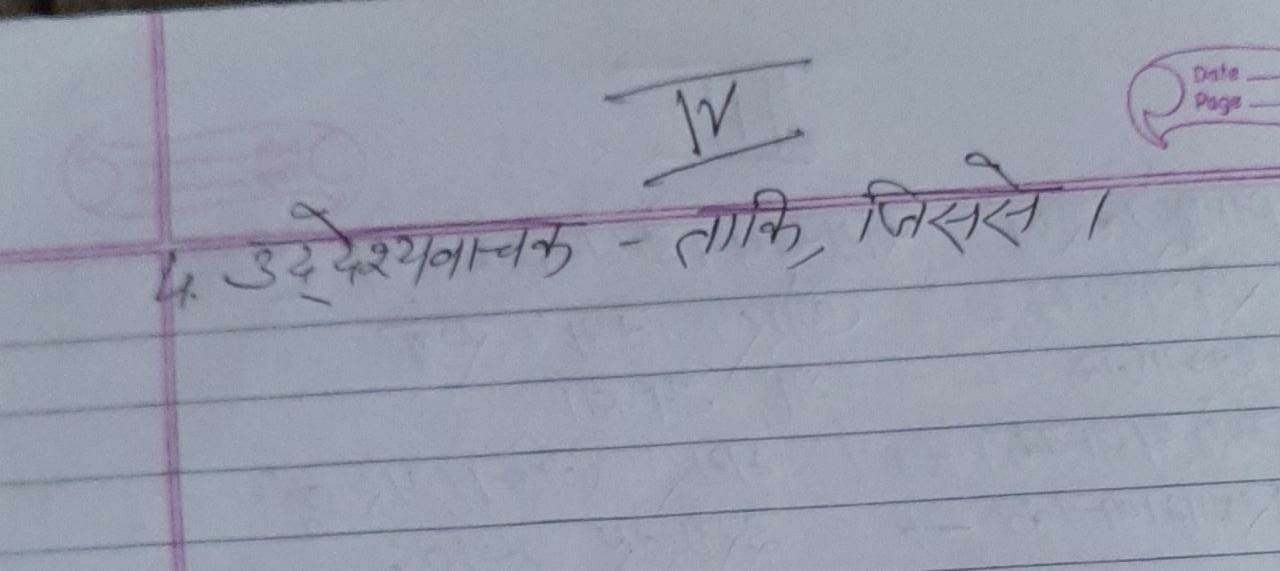 IV
Date
Page
4. उद्देश्यवाचक - ताकि, जिससे ।